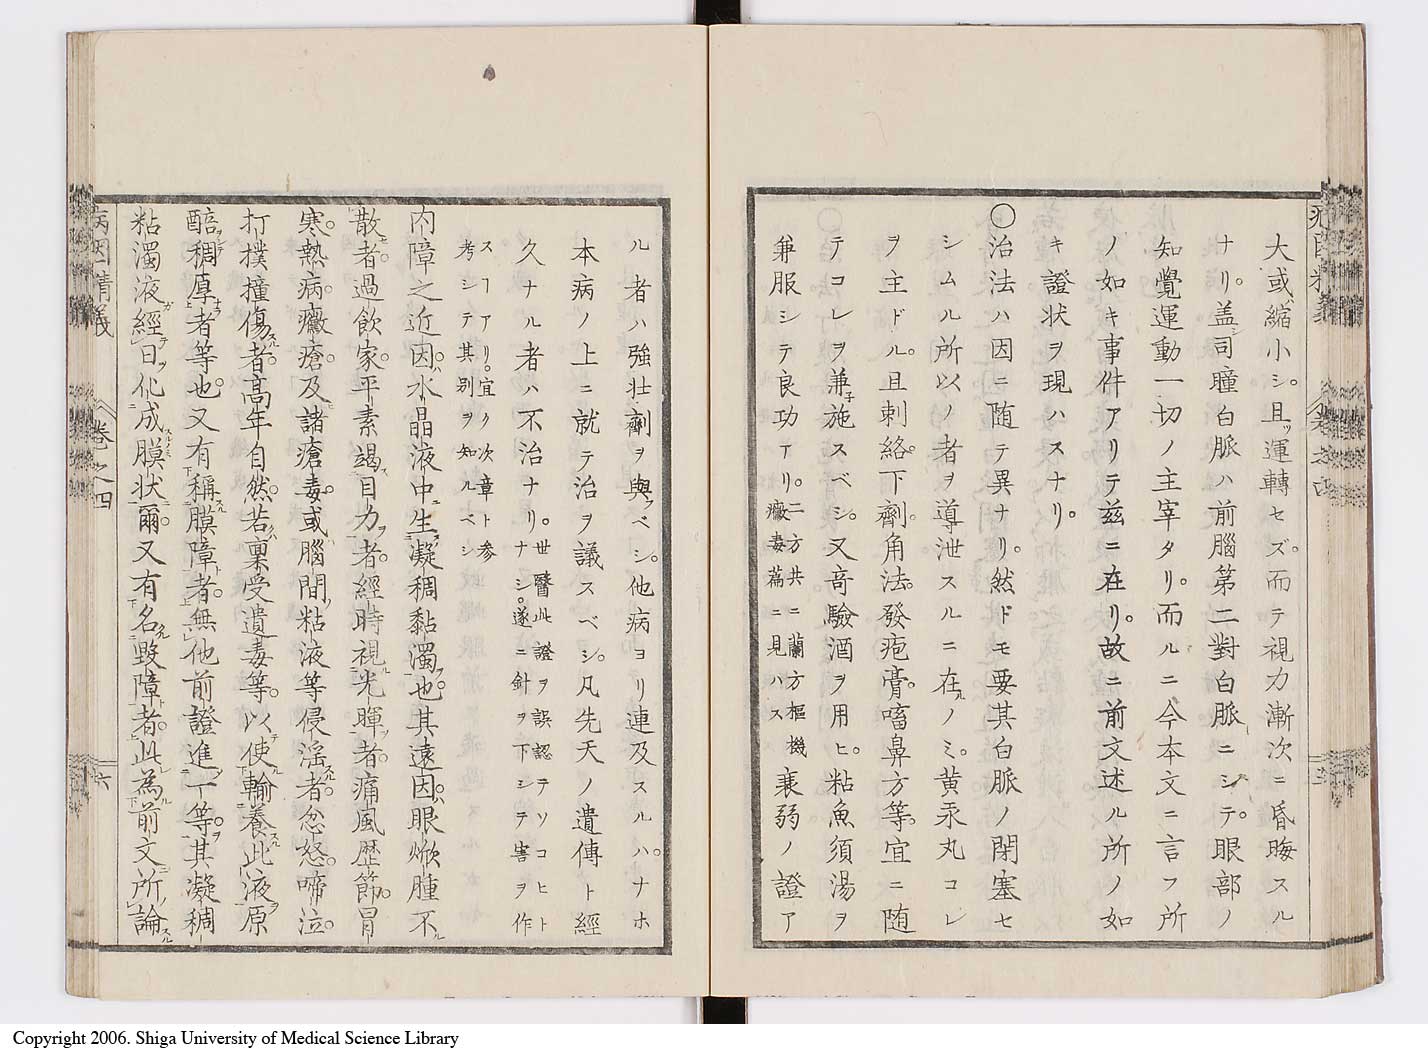 大或縮小シ。且ッ運轉セズ。而テ視力漸次ニ昏晦スル
ナリ。盖シ司瞳白脈ハ前腦第二對白脈ニシテ。眼部ノ
知覺運動一切ノ主宰タリ。而ルニ今本文ニ言フ所
ノ如キ事件アリテ茲ニ在リ。故ニ前文述ル所ノ如
キ證状ヲ現ハスナリ。
〇治法ハ因ニ随テ異ナリ。然ドモ要其白脈ノ閉塞セ
シムル所以ノ者ヲ導泄スルニ在ルノミ。黄汞丸コレ
ヲ主ドル。且刺絡。下劑。角法。發疱膏。嗜鼻方等。宜ニ随
テコレヲ兼子施スベシ。又竒驗酒ヲ用ヒ。粘魚須湯ヲ
兼服シテ良功アリ。二方共ニ蘭方樞機衰弱ノ證ア
黴毒篇ニ見ハス
ル者ハ強壮劑ヲ與フベシ。他病ヨリ連及スルハ。ナホ
本病ノ上ニ就テ治ヲ議スベシ。凡先天ノ遺傳ト經
久ナル者ハ不治ナリ。世醫此證ヲ誤認テソコヒト
ナシ。遂ニ針ヲ下シテ害ヲ作
スヿアリ。宜ク次章ト参
考シテ其別ヲ知ルベシ
内障之近因。水晶液中生凝稠黏濁也。其遠因。眼焮腫不
散者。過飲家。平素竭目力者。經時視光暉者。痛風。歴節。冒
寒。熱病。黴瘡。及諸瘡毒。或腦間粘液等侵滛者。忿怒。啼泣。
打撲撞傷者。高年自然。若稟受遺毒等。以使輸養此液原
醅稠厚者等也。又有稱膜障者。無他前證進一等。其凝稠
粘濁液。經日化成膜状爾。又有名毀障者。此為前文所論
病因精義
卷之四
六